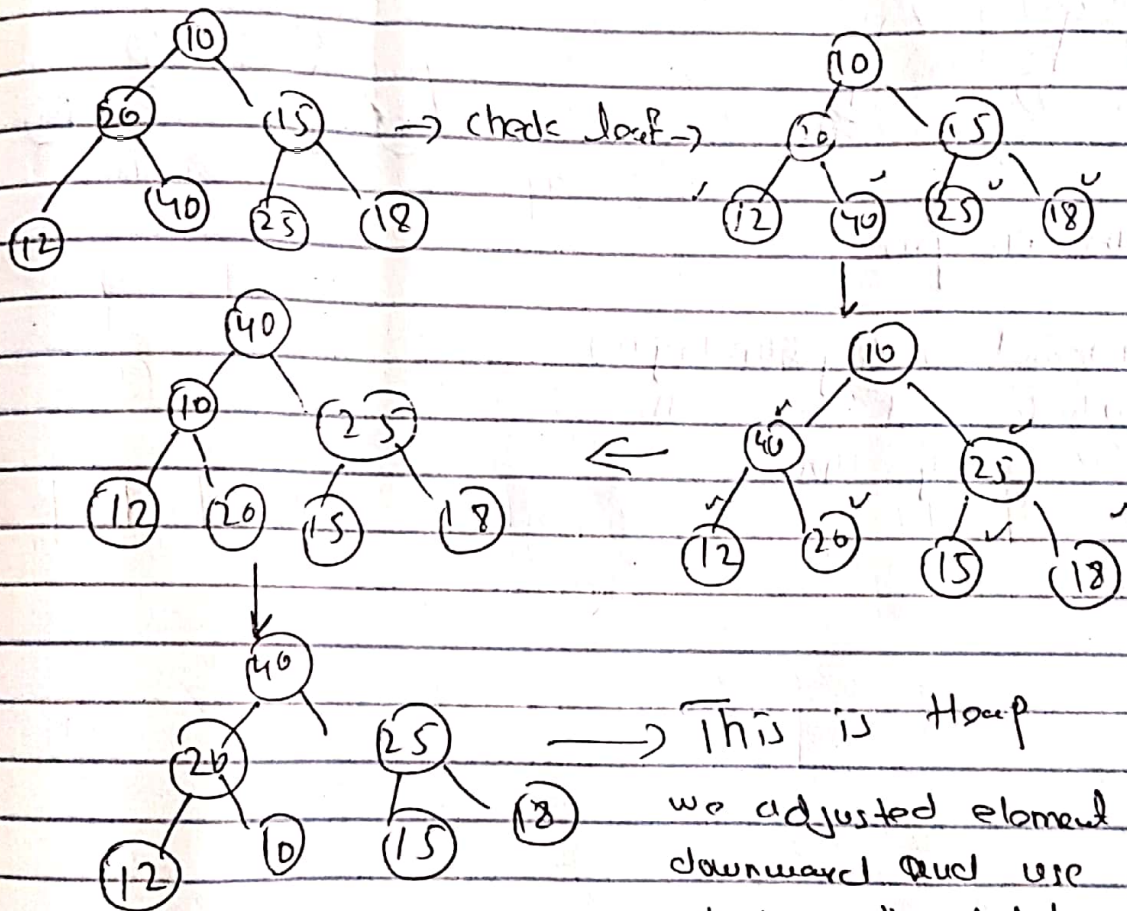 10
20 15
12 40 25 18
→ check leaf →
10
20 15
12 40 25 18
10
40 25
12 20 15 18
40
10 25
12 20 15 18
40
20 25
12 10 15 18
→ This is Heap
we adjusted element
downward and use